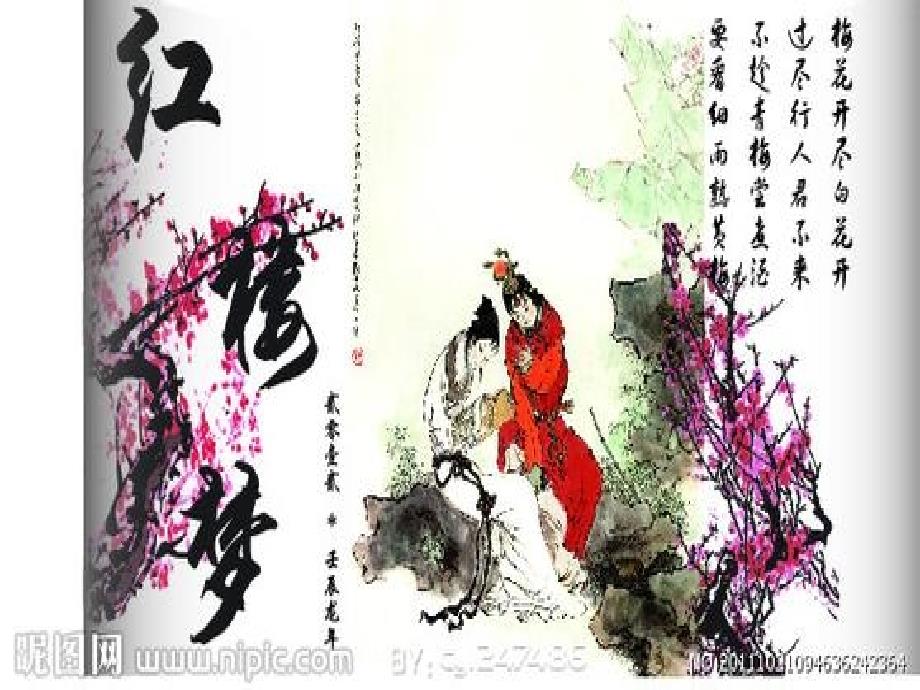 红楼梦
梅花开尽白花开
过尽行人君不来
不趁青梅尝煮酒
要看细雨熟黄梅
贰零壹贰 * 壬辰龙年
昵图网 www.nipic.com